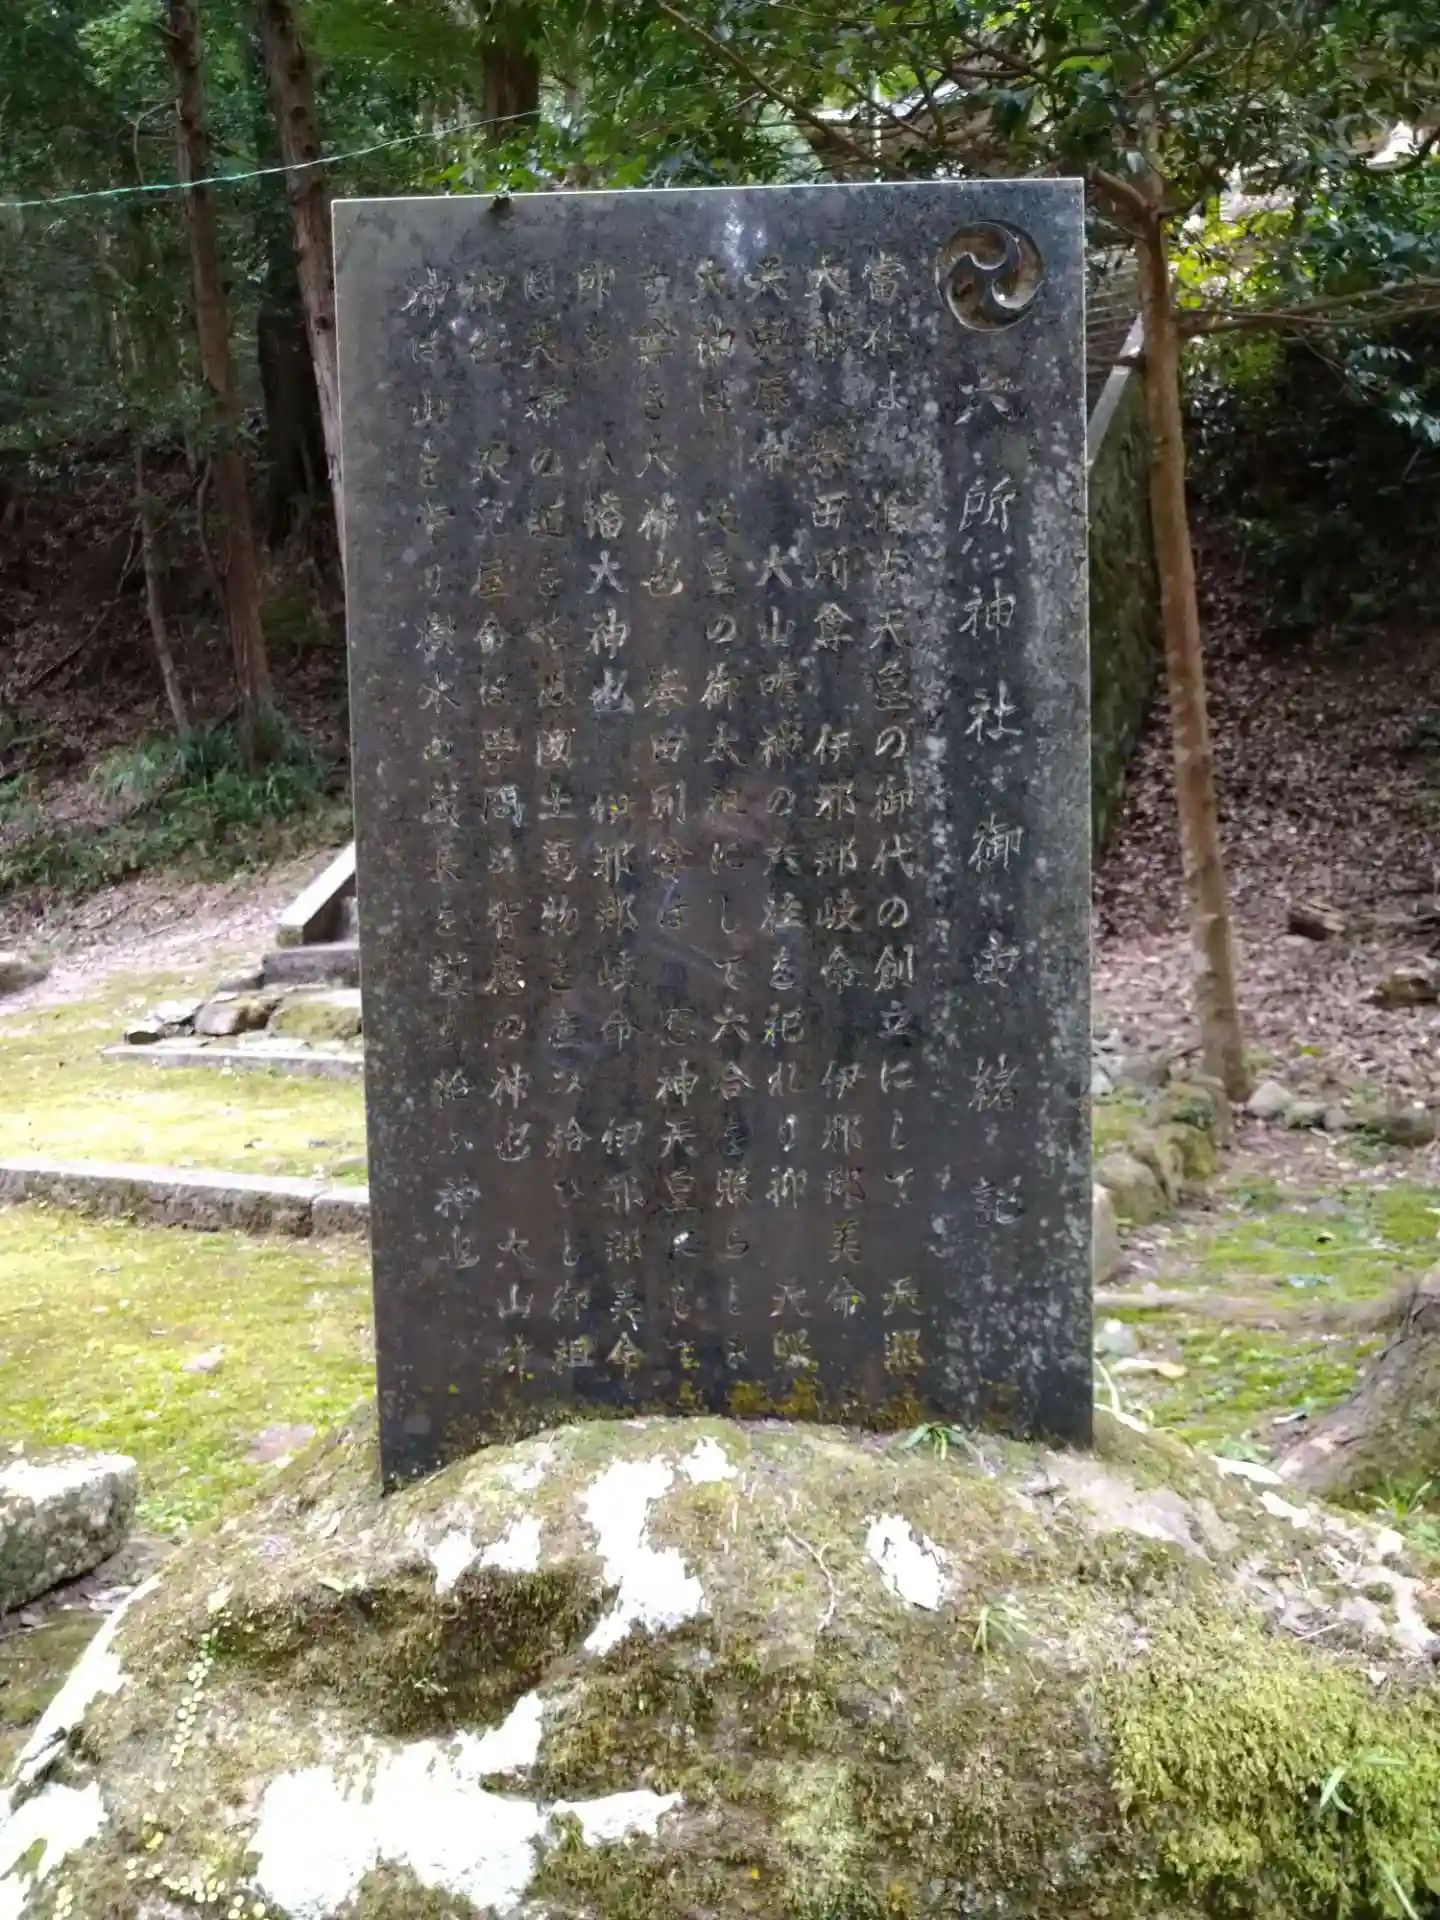 六所神社御由緒記
當社は 推古天皇の御代の創立にして 天照
大神 誉田別尊 伊邪那岐命 伊邪那美命
天児屋命 大山咋神の六柱を祀れり抑 天照
大神は 天皇の御太祖にして六合を照らしま
す尊き大神也 誉田別尊は 応神天皇にして
即ち 八幡大神也 伊邪那岐命 伊邪那美命
は夫婦の道を 国土萬物を産み給ひし御祖
神也 天児屋命は學問や智恵の神也 大山咋
神は山を守り樹木の成長を 佑ふ神也